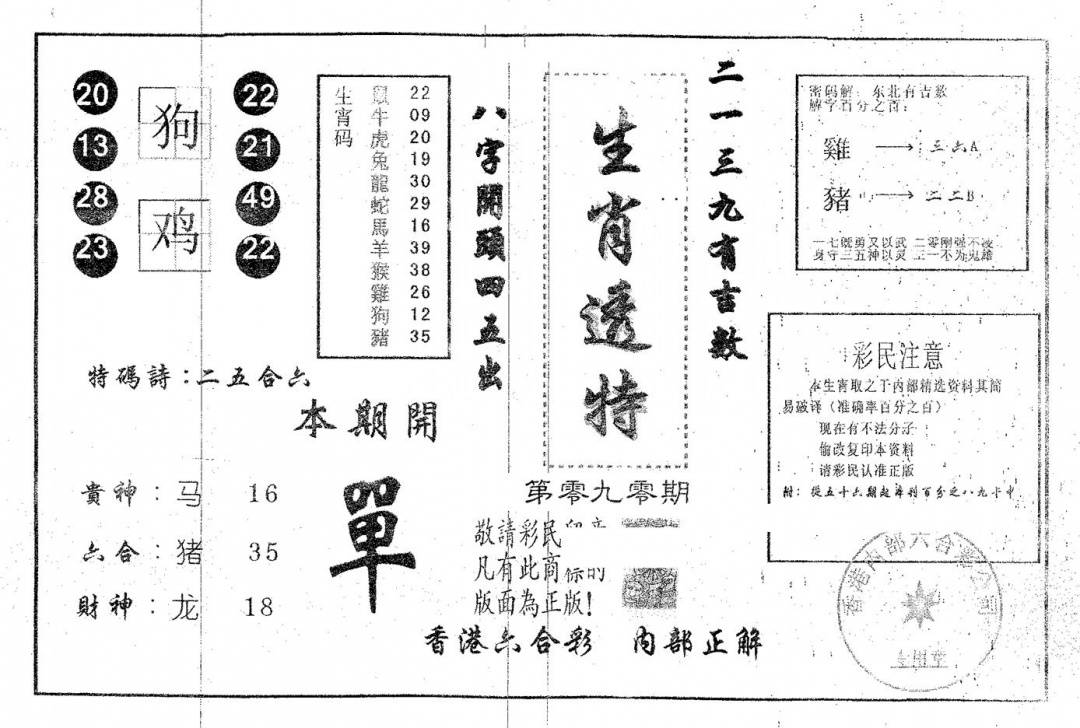 20
13
28
23
狗
鸡
22
21
49
22
特碼詩：二五合六
本期開
單
貴神：马 16
六合：猪 35
財神：龙 18
生宵码
鼠 22
牛 09
虎 20
兔 19
龍 30
蛇 29
馬 16
羊 39
猴 38
雞 26
狗 12
豬 35
八字開頭四五出
生肖透特
二一三九有吉数
第零九零期
敬請彩民
凡有此商标的
版面為正版!
香港六合彩 内部正解
密码解：东北有吉数
解字百分之百：
雞 → 三六A
豬 → 二二B
一七既勇又以武 二零刚强不凌
身守三五神以灵 三一不为鬼雄
彩民注意
本生宵取之于内部精选资料其简
易破译（准确率百分之百）
现在有不法分子
偷改复印本资料
请彩民认准正版
附：從五十六期起準到百分之八九十中
香港内部六合彩公司
专用章